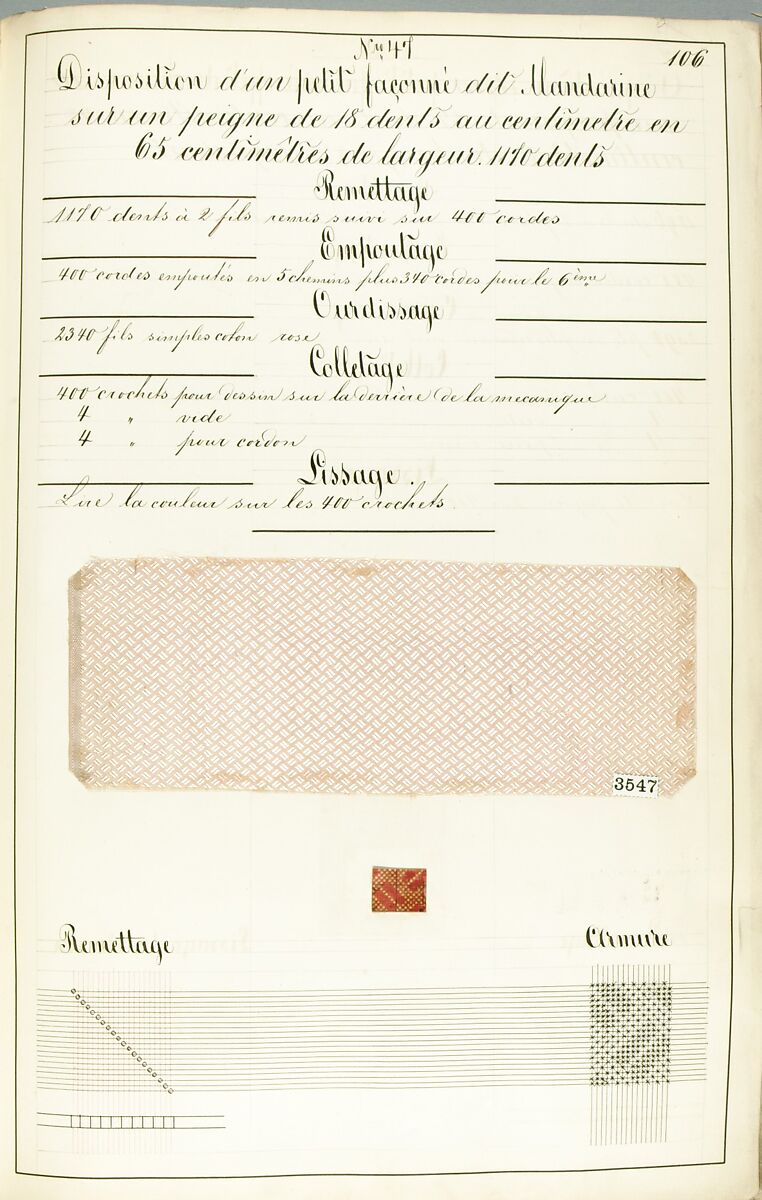 N° 47
106
Disposition d'un petit façonné dit Mandarine
sur un peigne de 18 dents au centimètre en
65 centimêtres de largeur. 1170 dents
Remettage
1170 dents à 2 fils remis suivi sur 400 cordes
Empoutage
400 cordes empoutés en 5 chemins plus 340 cordes pour le 6ème
Ourdissage
2340 fils simples coton rose
Colletage
400 crochets pour dessin sur la derrière de la mecanique
4 " vide
4 " pour cordon
Lissage.
Lire la couleur sur les 400 crochets
3547
Remettage
Armure